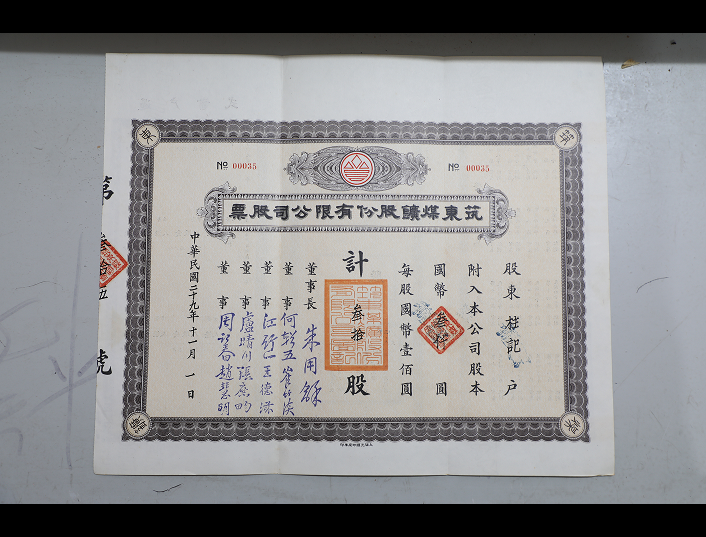 No 00035
No 00035
筑東煤鑛股份有限公司股票
股東 記戶
附入本公司股本
國幣叁仟圓
每股國幣壹佰圓
計叁拾股
董事長 朱用龢
董事 何彭五
董事 江衍一 王德
董事 盧晴川 張庶昀
董事 周 趙慧明
中華民國二十九年十一月一日
第叁拾五號